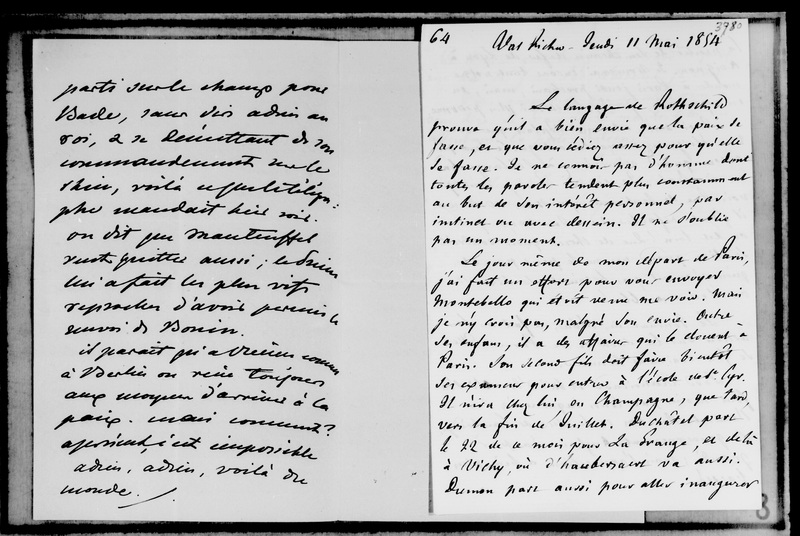 parti sur le champ pour
Bade, sans dire adieu au
roi, & se démettant de son
commandement sur le
Rhin, voilà ce que le télégra-
phe mandait hier soir.
on dit que Manteuffel
veut quitter aussi ; le Prince
lui a fait les plus vifs
reproches d'avoir permis le
renvoi de Bonin.
il parait qu'à Vienne comme
à Berlin on rêve toujours
aux moyens d'arriver à la
paix. mais comment ?
à présent, c'est impossible
adieu, adieu, voilà du
monde.
3780
64 Val Richer - Jeudi 11 Mai 1854
Le langage de Rothschild
prouve qu'il a bien envie que la paix se
fasse, et que vous cédiez assez pour qu'elle
se fasse. Je ne connois pas d'homme dont
toutes les paroles tendent plus constamment
au but de son intérêt personnel, par
instinct ou avec dessein. Il ne s'oublie
pas un moment.
Le jour même de mon départ de Paris,
j'ai fait un effort pour vous envoyer
Montebello qui étoit venu me voir. Mais
je n'y crois pas, malgré son envie. Outre
ses enfans, il a des affaires qui le clouent à
Paris. Son second fils doit faire bientôt
ses examens pour entrer à l'école de St Cyr.
Il n'ira chez lui, en Champagne, que tard,
vers la fin de Juillet. Duchâtel part
le 22 de ce mois pour La Grange, et de là
à Vichy, où d'Haubersaert va aussi.
Dumon part aussi pour aller inaugurer
3